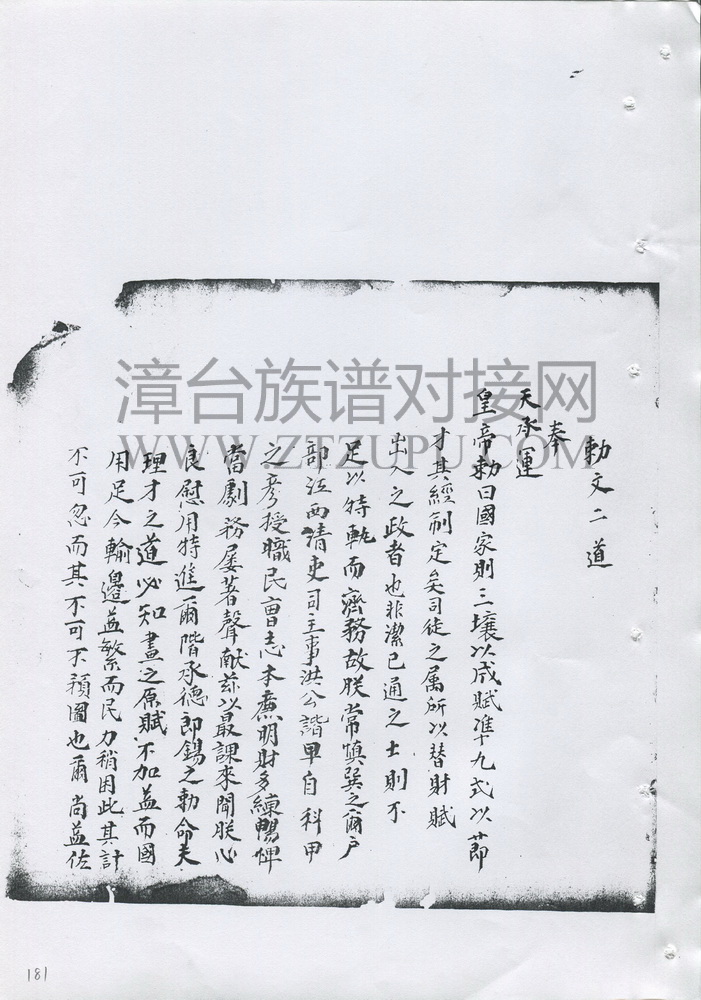 勅文二道
奉
天承運
皇帝勅曰國家則三壤以成賦準九式以節
才其經制定矣司徒之属所以替財賦
出入之政者也非潔已通之士則不
足以特軌而濟務故朕常慎巽之爾户
部江西清吏司主事洪公諧甲自科甲
之彦授職民曹志本亷明財多練暢惮
當劇務屡著聲献兹以最課來聞朕心
良慰用特進爾階承德郎錫之勅命夫
理才之道必知盡之原賦不加益而國
用足今輸邊益繁而民力稍困此其計
不可忽而其不可不預圖也爾尚益佐
漳台族谱对接网
WWW.ZTZUPU.COM
181